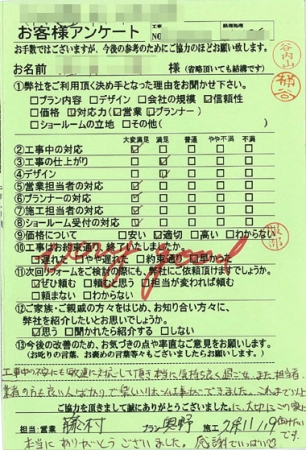 お客様アンケート
工事No
お手数ではございますが、今後の参考のためにご協力のほどお願い致します。
お名前 様(省略頂いても結構です)
①弊社をご利用頂く決め手となった理由をお聞かせ下さい。
□プラン内容 □デザイン □会社の規模 ☑信頼性
□価格 ☑対応力(☑営業 □プランナー)
□ショールームの立地 □その他( )
大変満足 満足 普通 やや不満 不満
②工事中の対応
③工事の仕上がり
④デザイン
⑤営業担当者の対応
⑥プランナーの対応
⑦施工担当者の対応
⑧ショールーム受付の対応
⑨価格について □安い ☑適切 □高い □わからない
⑩工事はお約束通り終了いたしましたか。
□遅れた □やや遅れた □約束通り ☑早かった
very good
⑪次回リフォームをご検討の際にも、弊社にご依頼頂けますでしょうか。
☑ぜひ頼む □頼むと思う □担当が変われば頼む
□頼まない □わからない
⑫ご家族・ご親戚の方々をはじめ、お知り合い方々に、
弊社を紹介したいとお思いでしょうか。
☑思う □聞かれたら紹介する □しない
⑬今後の改善のため、お気づきの点や率直なご意見をお聞かせ下さい。
(お叱りの言葉、お褒めの言葉等もございましたらお願いします。)
ご協力を頂きまして誠にありがとうございました。
担当:営業 藤村 プラン 奥野 施工
本当にありがとうございました。感謝でいっぱいです